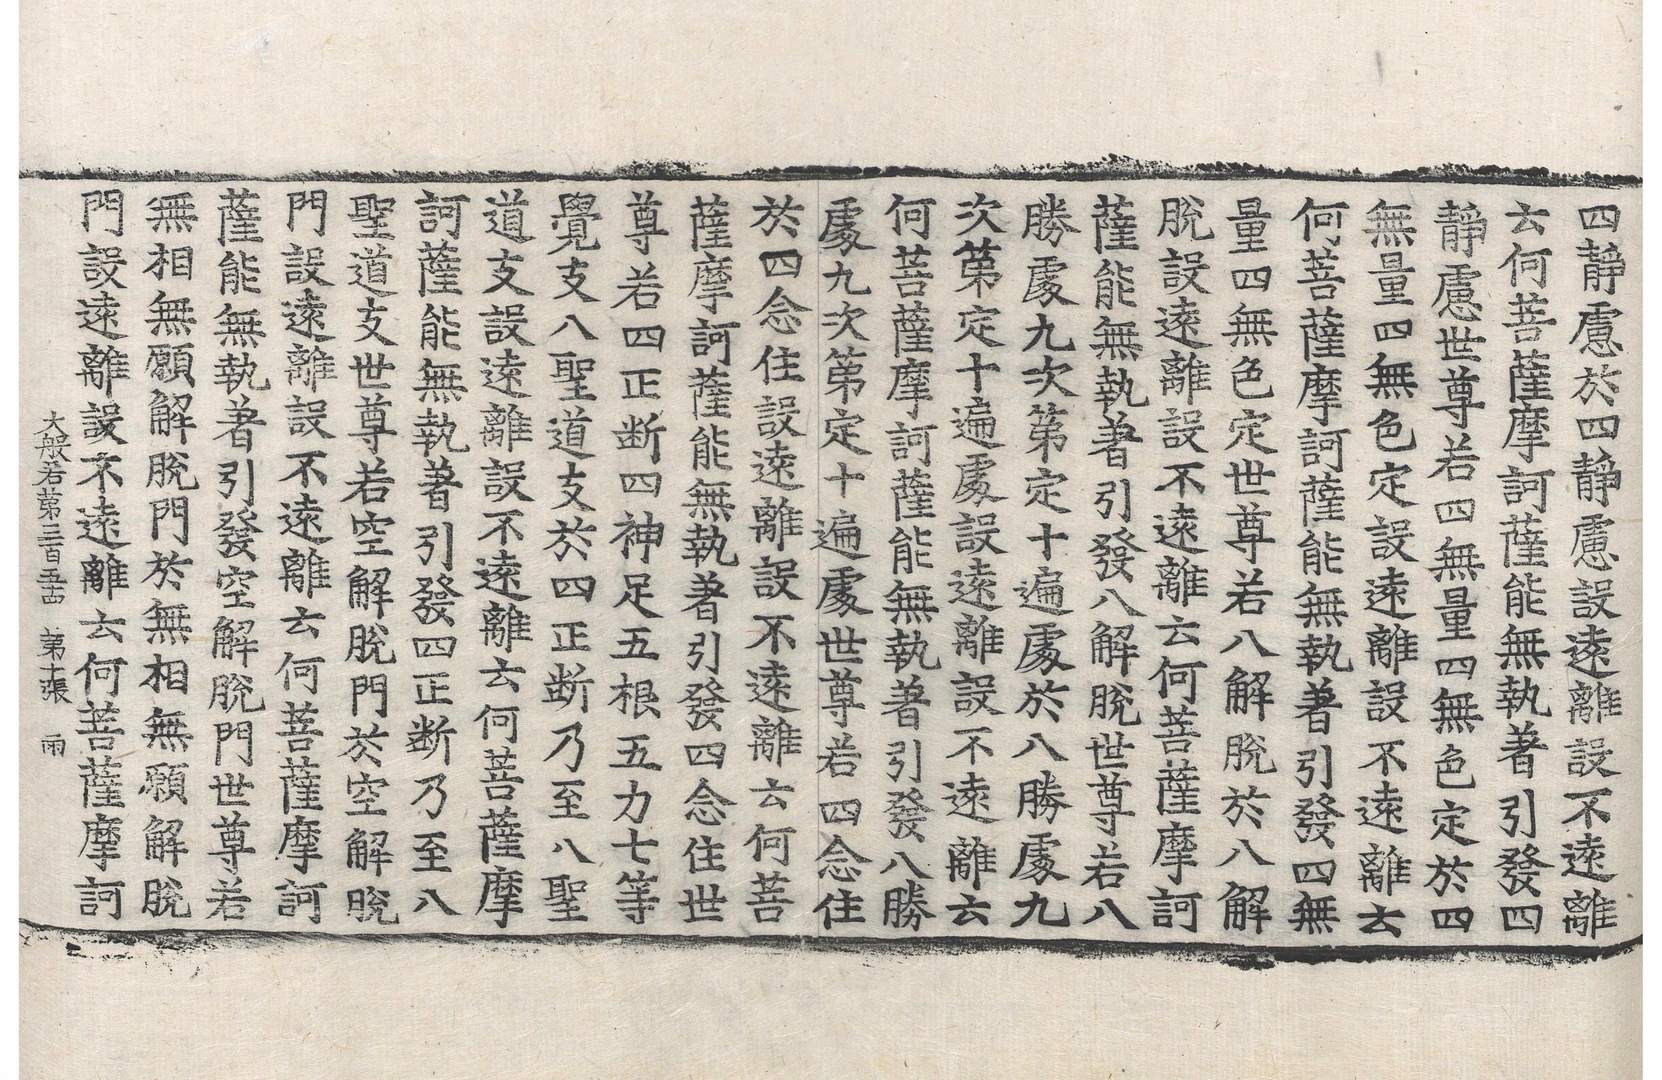 四靜慮於四靜慮設遠離設不遠離
云何菩薩摩訶薩能無執著引發四
靜慮世尊若四無量四無色定於四
無量四無色定設遠離設不遠離云
何菩薩摩訶薩能無執著引發四無
量四無色定世尊若八解脫於八解
脫設遠離設不遠離云何菩薩摩訶
薩能無執著引發八解脫世尊若八
勝處九次第定十遍處於八勝處九
次第定十遍處設遠離設不遠離云
何菩薩摩訶薩能無執著引發八勝
處九次第定十遍處世尊若四念住
於四念住設遠離設不遠離云何菩
薩摩訶薩能無執著引發四念住世
尊若四正断四神足五根五力七等
覺支八聖道支於四正断乃至八聖
道支設遠離設不遠離云何菩薩摩
訶薩能無執著引發四正断乃至八
聖道支世尊若空解脫門於空解脫
門設遠離設不遠離云何菩薩摩訶
薩能無執著引發空解脫門世尊若
無相無願解脫門於無相無願解脫
門設遠離設不遠離云何菩薩摩訶
大般若第三百五十四 第十張 雨